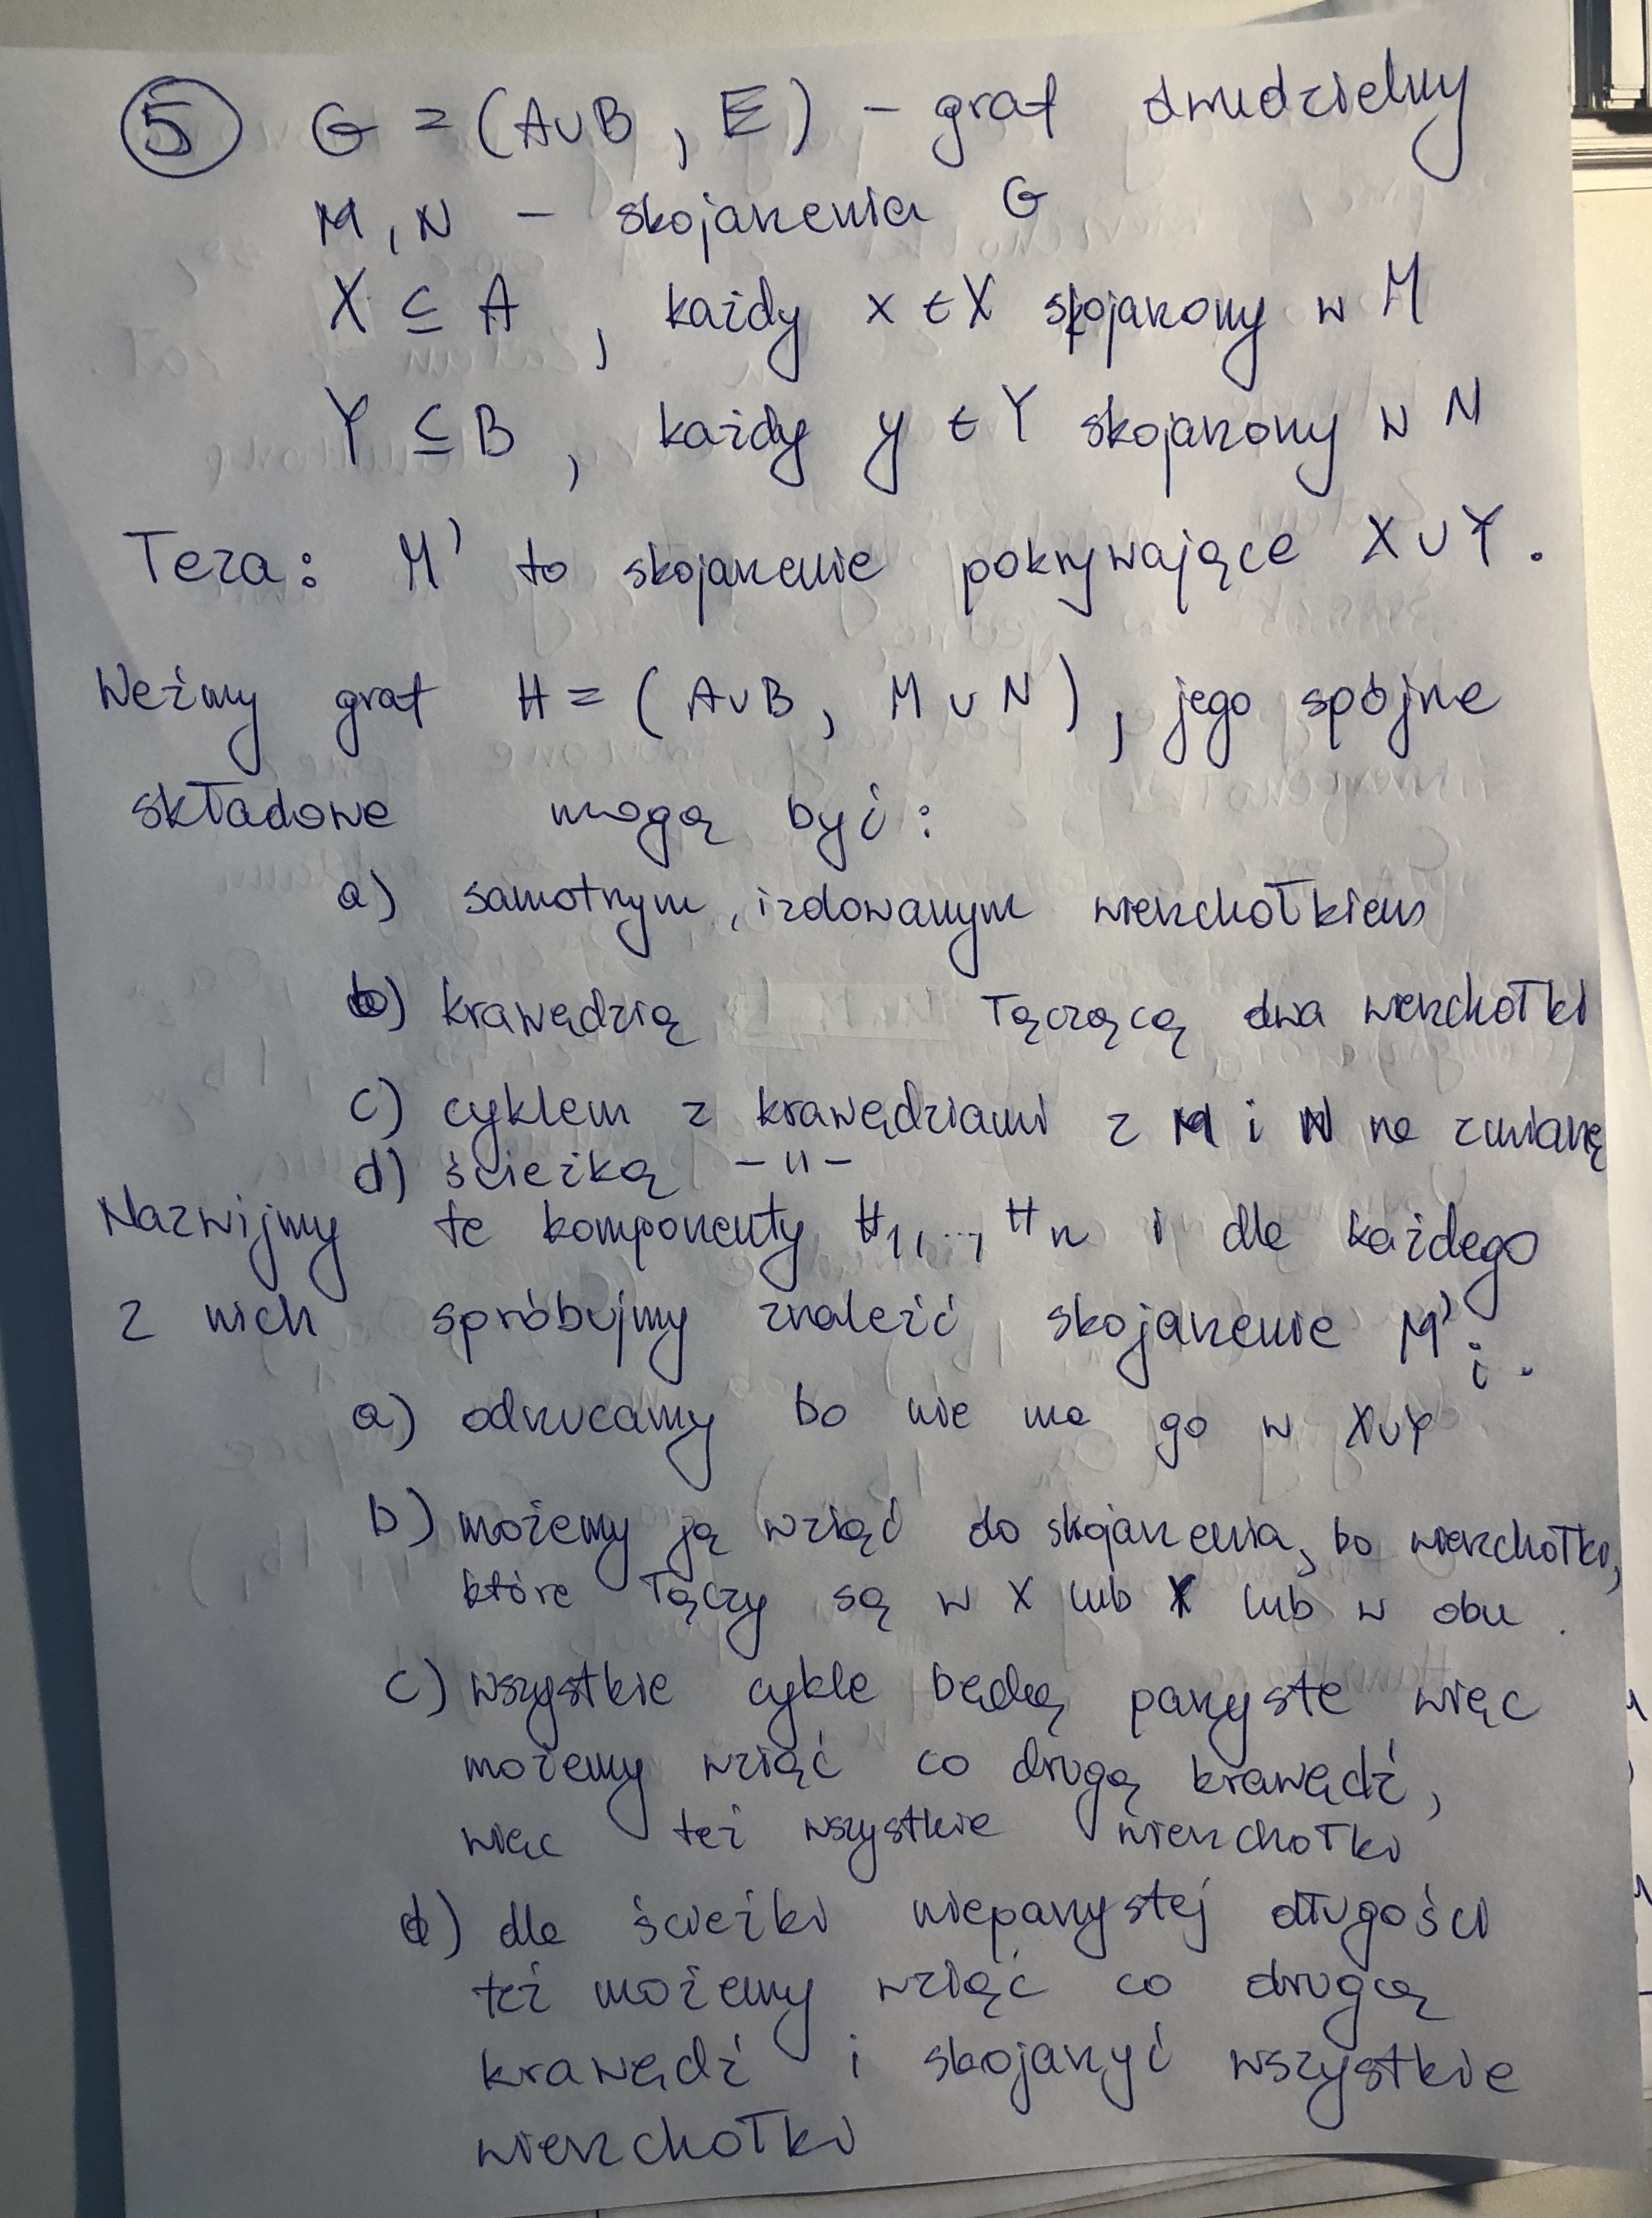 ⑤ G = (A∪B, E) – graf dwudzielny
M, N – skojarzenia G
X ⊆ A, każdy x ∈ X skojarzony w M
Y ⊆ B, każdy y ∈ Y skojarzony w N
Teza: M' to skojarzenie pokrywające X∪Y.
Weźmy graf H = (A∪B, M∪N), jego spójne
składowe mogą być:
a) samotnym, izolowanym wierzchołkiem
b) krawędzią łączącą dwa wierzchołki
c) cyklem z krawędziami z M i N na zmianę
d) ścieżką –"–
Nazwijmy te komponenty H₁,..., Hₙ i dla każdego
z nich spróbujmy znaleźć skojarzenie M'ᵢ.
a) odrzucamy bo nie ma go w X∪Y
b) możemy ją wziąć do skojarzenia, bo wierzchołki,
które łączy są w X lub Y lub w obu.
c) wszystkie cykle będą parzyste więc
możemy wziąć co drugą krawędź,
więc też wszystkie wierzchołki
d) dla ścieżki nieparzystej długości
też możemy wziąć co drugą
krawędź i skojarzyć wszystkie
wierzchołki